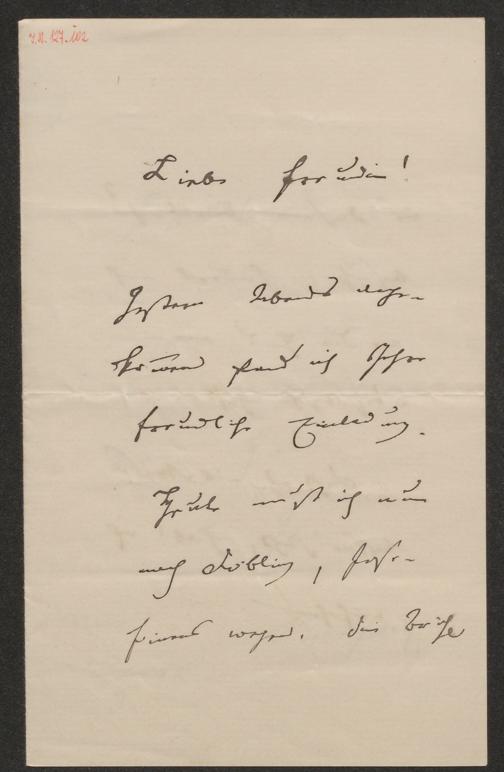 I.N. 127.102
Liebe Freundin!
Gestern Abends ange-
kommen fand ich Ihre
freundliche Einladung.
Heute muß ich nun
nach Döbling, Jose-
finens wegen. Die